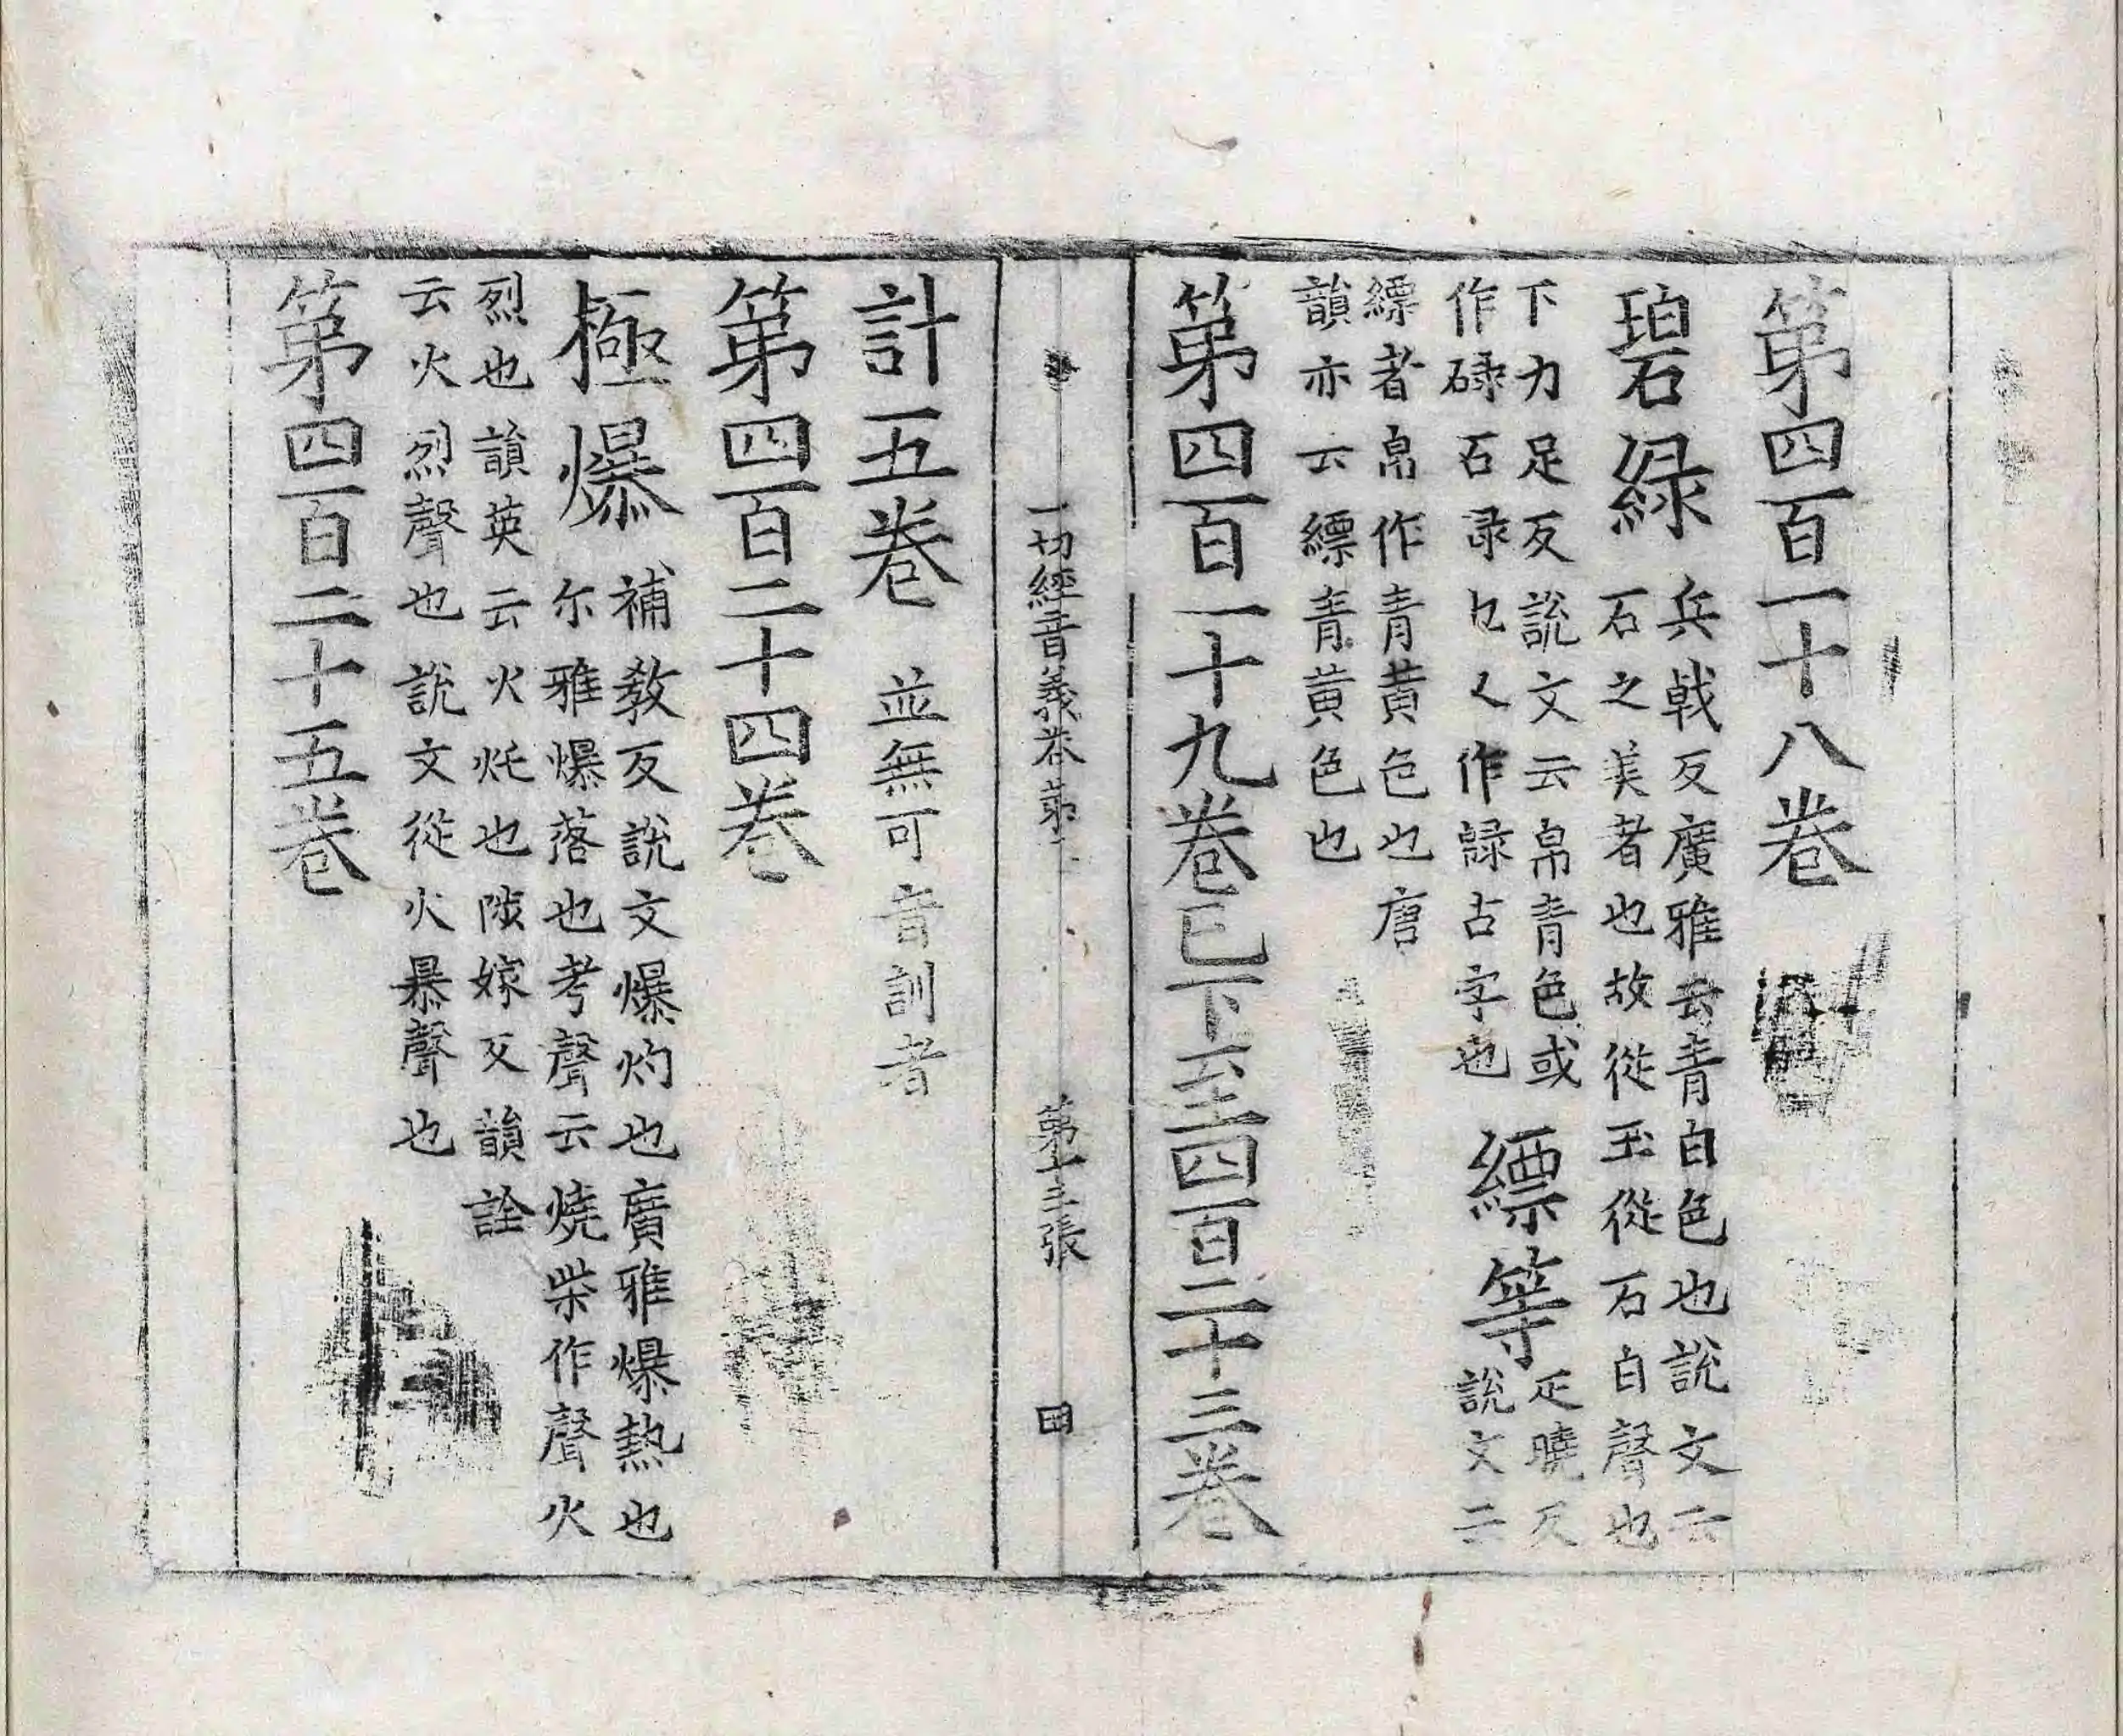 第四百一十八卷
碧緑
兵戟反廣雅云青白色也說文云
石之美者也故從玉從石白聲也
下力足反說文云帛青色或
作碌石录㔾乆作録古字也
縹等
疋曉反
說文云
縹者帛作青黄色也唐
韻亦云縹青黄色也
第四百一十九卷已下至四百二十三卷
一切經音義卷第 第十三張 田
計五卷 並無可音訓者
第四百二十四卷
極爆
補教反說文爆灼也廣雅爆熱也
尔雅爆落也考聲云燒柴作聲火
烈也韻英云火灹也陟嫁反韻詮
云火烈聲也說文從火暴聲也
第四百二十五卷